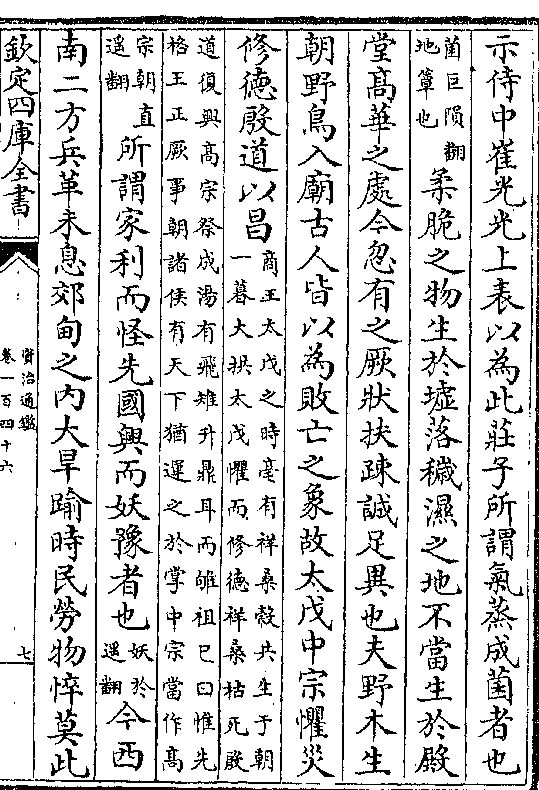 示侍中崔光光上表以為此莊子所謂氣蒸成菌者也
菌巨隕翻
地簟也
柔脆之物生於墟落穢濕之地不當生於殿
堂髙華之處今忽有之厥狀扶疎誠足異也夫野木生
朝野鳥入廟古人皆以為敗亡之象故太戊中宗懼災
修德殷道以昌
商王太戊之時亳有祥桑榖共生于朝
一暮大拱太戊懼而修德祥桑枯死殷
道復興髙宗祭成湯有飛雉升鼎耳而雊祖己曰惟先
格王正厥事朝諸侯有天下猶運之於掌中宗當作髙
宗朝直
遥翻
所謂家利而怪先國興而妖豫者也
妖於
遥翻
今西
南二方兵革未息郊甸之内大旱踰時民勞物悴莫此
欽定四庫全書
資治通鑑
卷一百四十六
七